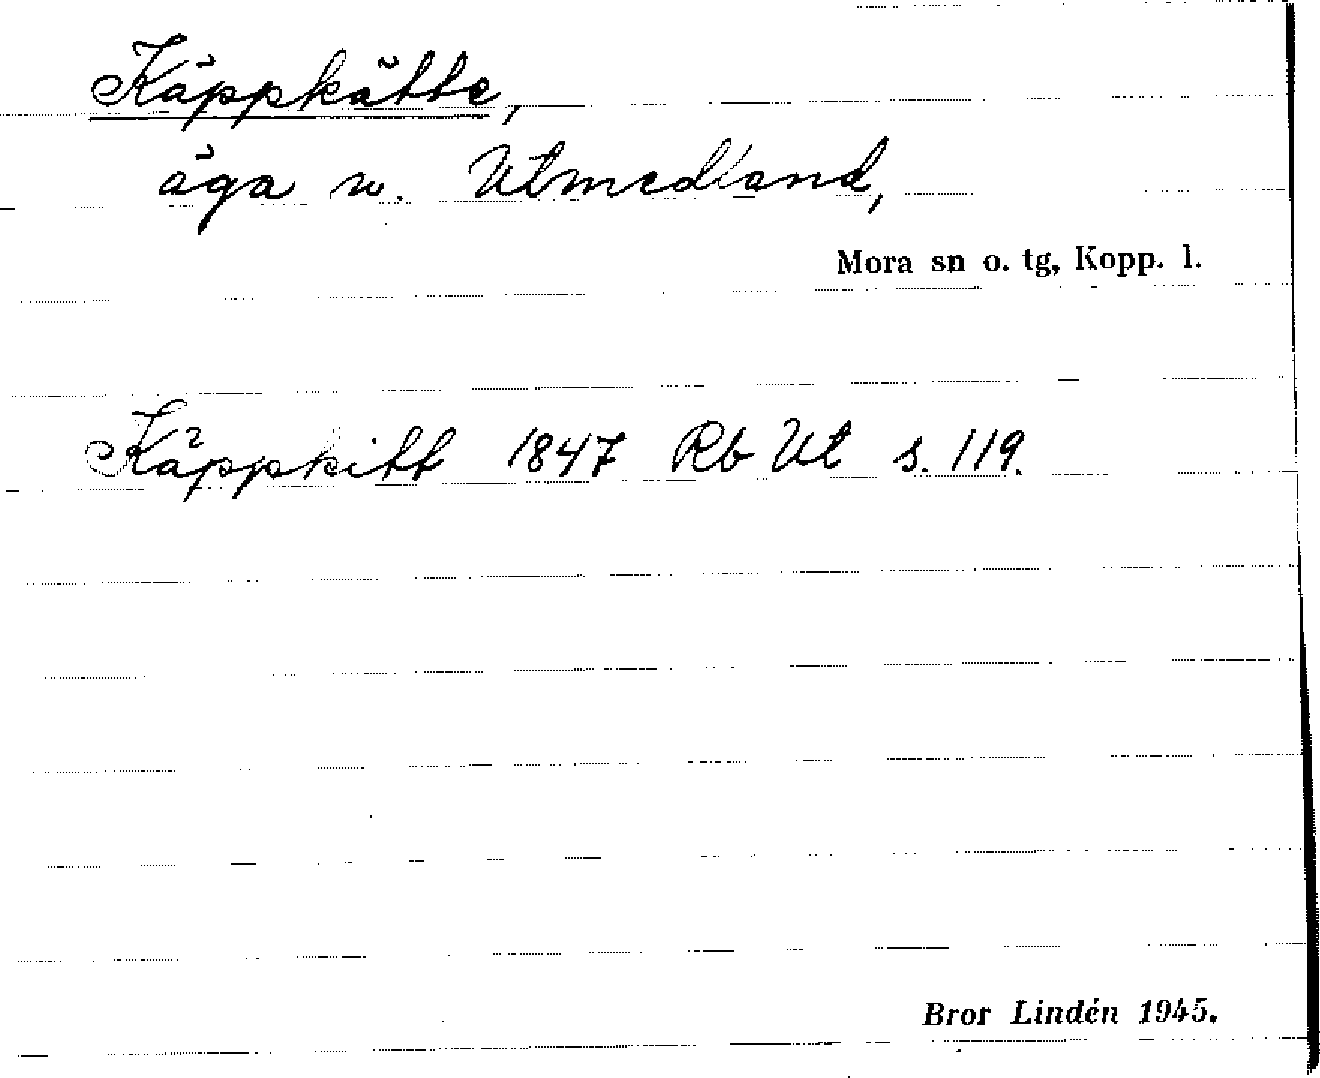 Käppkätte,
äga w. Utmedland,
Mora sn o. tg, Kopp. l.
Käppkitt 1847 Rb Ut s. 119.
Bror Lindén 1945.